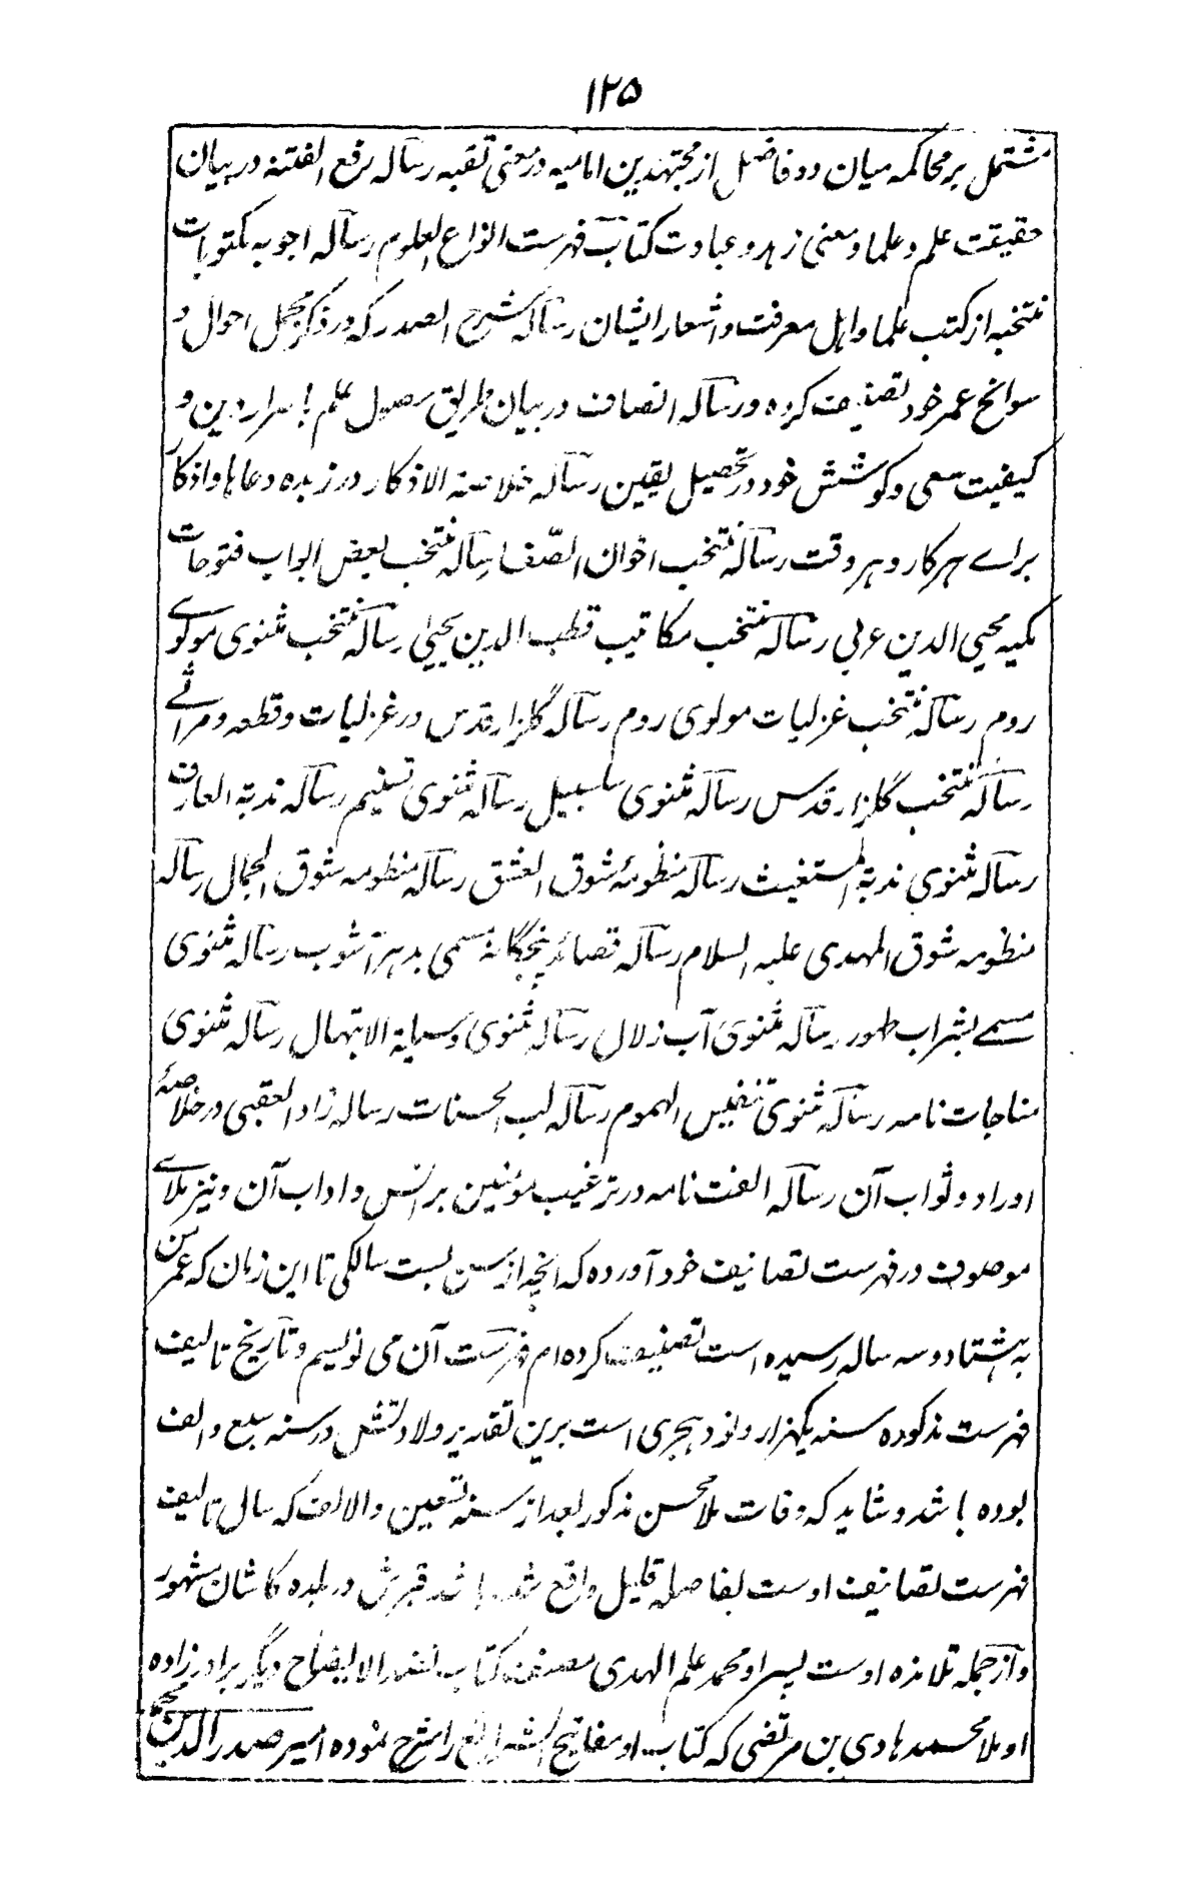 ۱۲۵
مشتمل بر محاکمه میان دو فاضل از مجتهدین امامیه در معنی تفقه رساله رفع الفتنه در بیان
حقیقت علم و علما و معنی زهد و عبادت کتاب فهرست انواع العلوم رساله اجوبه مکتوبات
منتخبه از کتب علما و اهل معرفت و اشعار ایشان رساله شرح الصدر که در ذکر مجمل احوال و
سوانح عمر خود تصنیف کرده و رساله انصاف در بیان طریق حصول علم باسرار دین و
کیفیت سعی و کوشش خود در تحصیل یقین رساله خلاصة الاذکار در زبده دعاها و اذکار
برای هر کار و هر وقت رساله منتخب اخوان الصّفا رساله منتخب بعض ابواب فتوحات
مکیه محیی الدین عربی رساله منتخب مکاتیب قطب الدین یحییٰ رساله منتخب مثنوی مولوی
روم رساله منتخب غزلیات مولوی روم رساله گلزار قدس در غزلیات و قطعه و مراثی
رساله منتخب گلزار قدس رساله مثنوی سلسبیل رساله مثنوی تسنیم رساله ندبة العارف
رساله مثنوی ندبة المستغیث رساله منظومهٔ شوق العشق رساله منظومه شوق الجمال رساله
منظومه شوق المهدی علیه السلام رساله قصائد پنجگانهٔ مسمی بدهر آشوب رساله مثنوی
مسمے بشراب طهور رساله مثنوی آب زلال رساله مثنوی وسیلة الابتهال رساله مثنوی
مناجات نامه رساله مثنوی تنفیس الهموم رساله لب الحسنات رساله زاد العقبی در خلاصهٔ
اوراد و ثواب آن رساله الفت نامه در ترغیب مؤمنین بر انس و اداب آن و نیز ملای
موصوف در فهرست تصانیف خود آورده که انچه از سن بست سالگی تا این زمان که عمر من
به هشتاد و سه ساله رسیده است تصنیف کرده ام فهرست آن می نویسم و تاریخ تالیف
فهرست مذکوره سنه یکهزار و نود هجری است برین تقدیر ولادتش در سنه سبع و الف
بوده باشد و شاید که وفات ملا محسن مذکور بعد از سنه تسعین و الالف که سال تالیف
فهرست تصانیف اوست بفاصله قلیل واقع شده باشد قبرش در بلده کاشان مشهور
و از جمله تلامذه اوست پسر او محمد علم الهدی مصنف کتاب نضد الایضاح دیگر برادر زاده
او ملا محمد هادی بن مرتضی که کتاب او مفاتیح الشرائع را شرح نموده امیر صدر الدین